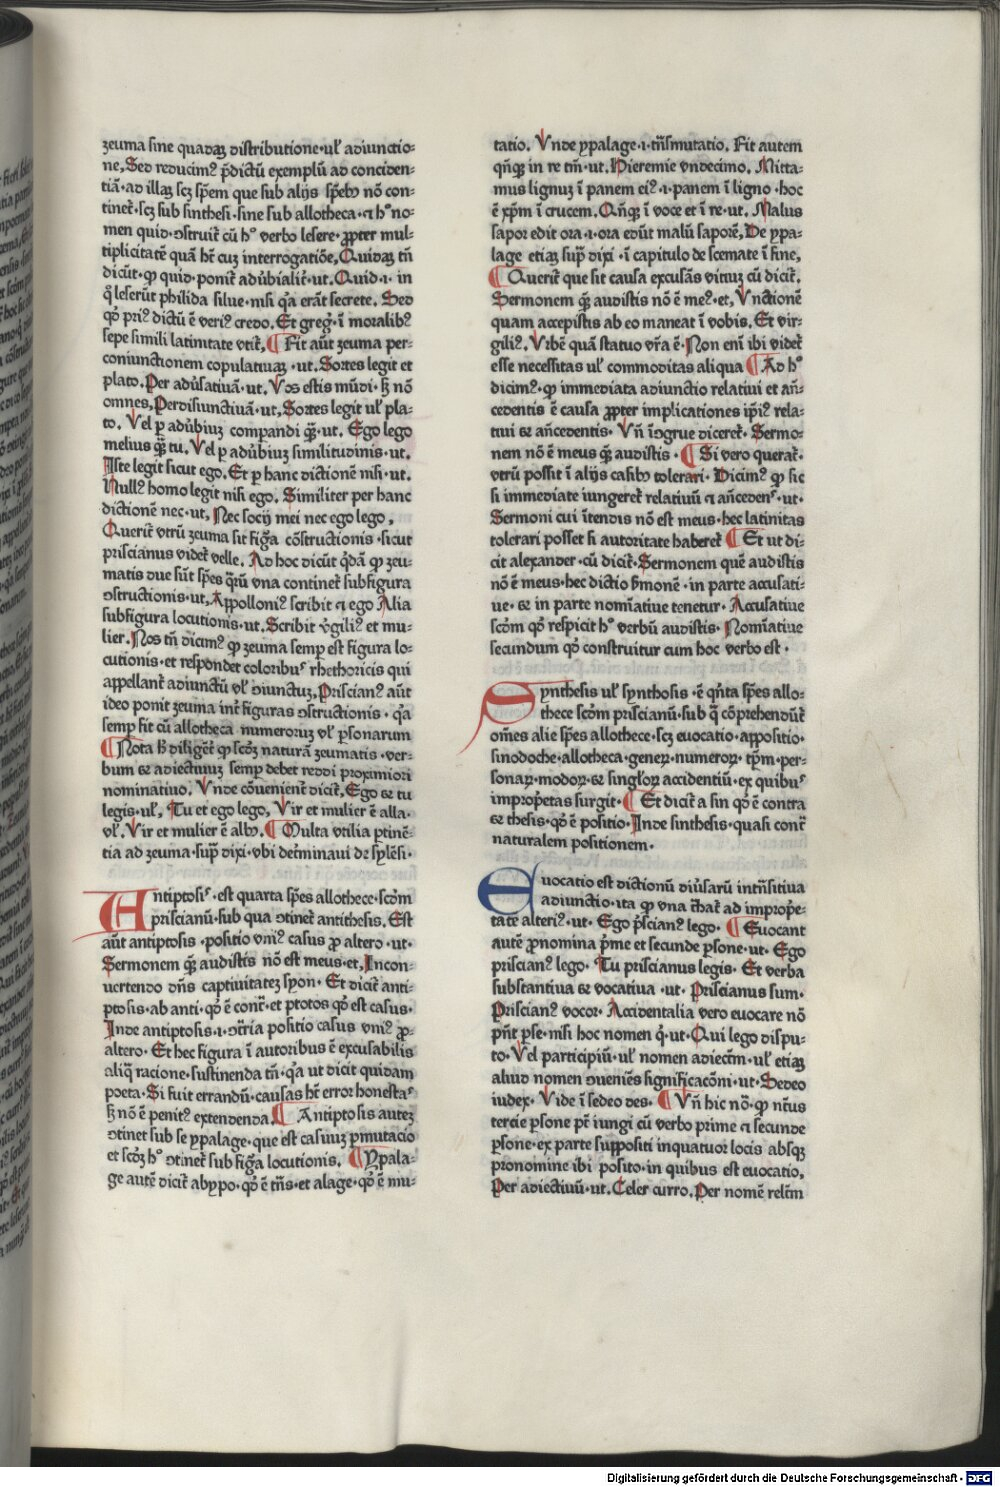 zeuma sine quadaꝫ distributione·ul᷑ adiunctio-
ne. Sed reducimꝰ p̄dictū exemplū ad conciden-
tiā·ad illaꝫ scꝫ spēm que sub alijs spēbꝰ nō con-
tinet᷑·scꝫ sub sinthesi·sine sub allotheca·⁊ hͦ no-
men quid·ↄstruit᷑ cū hͦ verbo lesere·ꝓpter mul-
tiplicitatē quā hēt cuꝫ interrogatiōe, Quidaꝫ tn̄
dicūt·ꝙ quid·ponit᷑ aduͥbialit᷑·ut. Quid·ı· in
qͦ leserūt philida silue·nisi qͥa erāt secrete. Sed
qͦd priꝰ dictū ē veriꝰ credo. Et greg᷑·ī moralibꝰ
sepe simili latinitate vtit᷑, ¶ Fit aūt zeuma per-
coniunctionem copulatiuaꝫ ·ut. Sortes legit et
plato. Per aduͥsatiuā·ut. Vos estis mūdi·sꝫ nō
omnes, Per disiunctiuā·ut, Sortes legit ul᷑ pla-
to. Vel ꝑ aduͥbiuꝫ compandi qꝫ̄·ut. Ego lego
melius qꝫ̄ tu. Vel ꝑ aduͥbiuꝫ similitudinis·ut.
Iste legit sicut ego. Et ꝑ hanc dictionē nisi·ut.
Nullꝰ homo legit nisi ego. Similiter per hanc
dictionē nec·ut, Nec socij mei nec ego lego,
Querit᷑ vtrū zeuma sit figᷓa cōstructionis·sicut
priscianus videt᷑ velle. Ad hoc dicūt qͥdā ꝙ zeu-
matis due sūt spēs qͣrū vna continet᷑ subfigura
ↄstructionis·ut, Appolloniꝰ scribit ⁊ ego Alia
subfigura locutionis·ut. Scribit vͥgiliꝰ et mu-
lier. Nos tn̄ dicimꝰ ꝙ zeuma semꝑ est figura lo-
cutionis·et respondet coloribuˢ rhethoricis qui
appellant᷑ adiunctū vl᷑ ꝺiunctuꝫ, Priscianꝰ aūt
ideo ponit zeuma int᷑ figuras ↄstructionis· qͥa
semꝑ fit cū allotheca numeroruꝫ vl᷑ ꝑsonarum
¶ Nota hͦ diligēt᷑ ꝙ scd̄ꝫ naturā zeumatis ·ver-
bum ⁊ adiectiuuꝫ semꝑ debet reddi proximiori
nominatiuo. Vnde cōuenient᷑ dicit᷑, Ego ⁊ tu
legis·ul᷑, Tu et ego lego, Vir et mulier ē alba·
vl᷑. Vir et mulier ē albꝰ. ¶ Multa vtilia ꝑtinē-
tia ad zeuma·supͣ dixi·vbi det᷑minaui de sylēsi·
Antiptosiˢ·est quarta spēs allothece·scd̄m
priscianū·sub qua ↄtinet᷑ antithesis. Est
aūt antiptosis ·positio vniꝰ casus ꝓ altero ·ut·
Sermonem qꝫ̄ audistis nō est meus·et, Incon-
uertendo dn̄s captiuitateꝫ syon· Et dicit᷑ anti-
ptosis·ab anti·qͦd ē contͣ·et ptotos qͦd est casus·
Inde antiptosis·ı·ↄtͣria positio casus vniꝰ ꝓ-
altero· Et hec figura ī autoribus ē excusabilis
aliqͣ racione·sustinenda tn̄·qͥa ut dicit quidam
poeta·Si fuit errandū·causas hēt error honestaˢ
sꝫ nō ē penitꝰ extendenda. ¶ Antiptosis auteꝫ
ↄtinet sub se ypalage·que est casuuꝫ ꝑmutacio
et scd̄ꝫ hͦ ↄtinet᷑ sub figᷓa locutionis. ¶ Ypala-
ge autē dicit᷑ ab ypo·qͦd ē tn̄s·et alage·qͦd ē mu-
tatio. Vnde ypalage·ı·tn̄smutatio. Fit autem
qn̄qꝫ in re tm̄·ut. Hieremie vndecimo. Mitta-
mus lignuꝫ ī panem eiꝰ·ı·panem ī ligno·hoc
ē xpm̄ ī crucem. Qn̄qꝫ ī voce et ī re·ut. Malus
sapor edit ora·ı·ora edūt malū saporē, De ypa-
lage etiaꝫ supͣ dixi ·ī capitulo de scemate ī fine,
¶ Querit᷑ que sit causa excusās vitiuꝫ cū dicit᷑.
Sermonem qꝫ̄ audistis nō ē meꝰ·et, Vnctionē
quam accepistis ab eo maneat ī vobis. Et vir-
giliꝰ. Vrbē quā statuo vr̄a ē· Non enī ibi videt᷑
esse necessitas ul᷑ commoditas aliqua ¶ Ad hͦ
dicimꝰ·ꝙ immediata adiunctio relatiui et an̄-
cedentis ē causa ꝓpter implicationes ip̄iꝰ rela-
tiui ⁊ an̄cedentis· Vn̄ īↄgrue diceret᷑· Sermo-
nem nō ē meus qꝫ̄ audistis · ¶ Si vero querat᷑·
vtrū possit ī alijs casibꝰ tolerari· Dicimꝰ ꝙ sic
si immediate iungeret᷑ relatiuū ⁊ an̄cedenˢ·ut·
Sermoni cui ītendis nō est meus·hec latinitas
tolerari posset si autoritate haberet᷑ ¶ Et ut di-
cit alexander·cū dicit᷑·Sermonem quē audistis
nō ē meus·hec dictio sͥmonē·in parte accusati-
ue·⁊ in parte nomīatiue tenetur· Accusatiue
scd̄m qͦd respicit hͦ verbū audistis· Nomīatiue
secundum qͦd construitur cum hoc verbo est·
Synthesis ul᷑ synthosis·ē qͥnta spēs allo-
thece scd̄m priscianū·sub qͣ cōprehendūt᷑
om̄es alie spēs allothece·scꝫ euocatio·appositio·
sinodoche·allotheca·geneꝝ·numeroꝝ·tp̄m·per-
sonaꝝ·modoꝝ·⁊ singloꝝ accidentiū·ex quibuˢ
impropͥetas surgit· ¶ Et dicit᷑ a sin qͦd ē contra
⁊ thesis·qͦd ē positio·Inde sinthesis·quasi contͣ
naturalem positionem·
Euocatio est dictionū diuͥsarū intn̄sitiua
adiunctio·ita ꝙ vna tͣhat᷑ ad impropͥe-
tatē alteriꝰ·ut· Ego pͥscianꝰ lego· ¶ Euocant
autē ꝓnomina pͥme et secunde ꝑsone·ut· Ego
priscianꝰ lego· Tu priscianus legis· Et verba
substantiua ⁊ vocatiua ·ut· Priscianus sum·
Priscianꝰ vocor· Accidentalia vero euocare nō
pn̄t ꝑ se·nisi hoc nomen qͥ·ut· Qui lego dispu-
to· Vel participiū·ul᷑ nomen adiectm̄·ul᷑ etiaꝫ
aliud nomen ꝺueniēs significacōni·ut· Sedeo
iudex· Vide ī sedeo des· ¶ Vn̄ hic nō·ꝙ nt̄us
tercie ꝑsone pt̄ iungi cū verbo prime ⁊ secunde
ꝑsone·ex parte suppositi inquatuor locis absqꝫ
pronomine ibi posito·in quibus est euocatio,
Per adiectiuū·ut. Celer curro. Per nomē relm̄
Digitalisierung gefördert durch die Deutsche Forschungsgemeinschaft · DFG